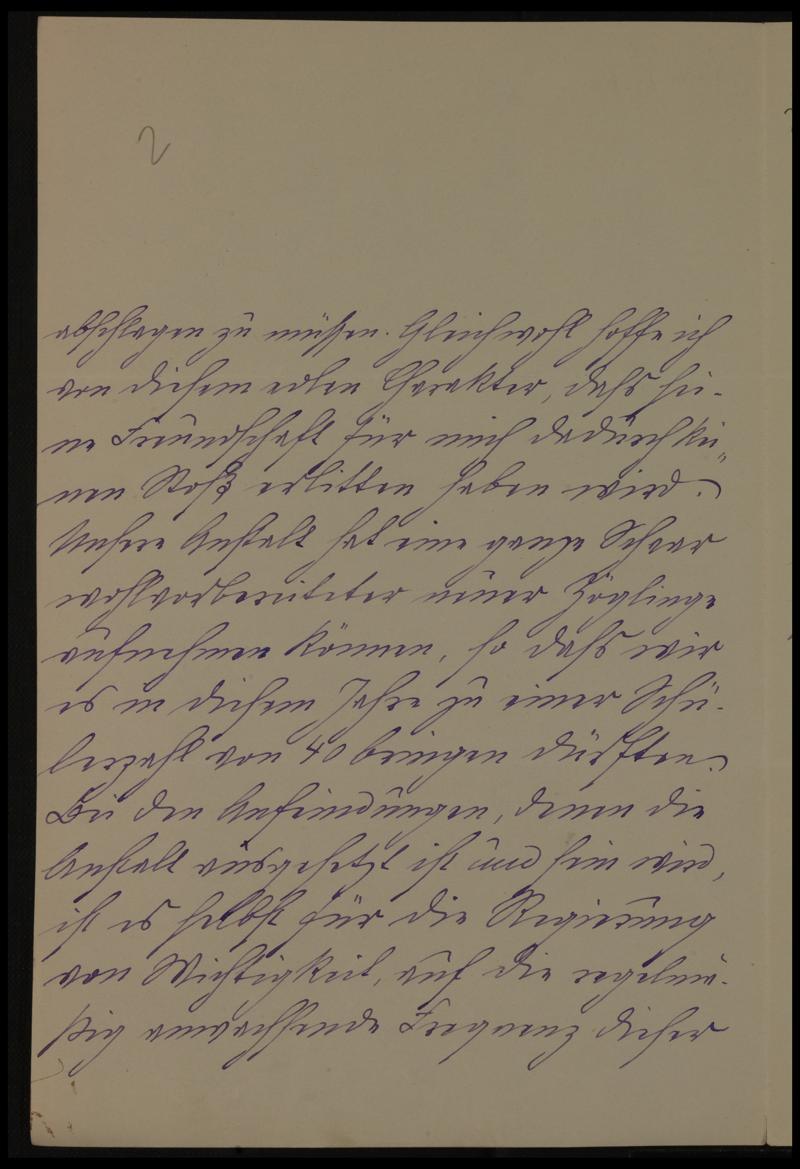 2
abschlagen zu müssen. Gleichwohl hoffe ich
von diesem edlen Charakter, dass sei-
ne Freundschaft für mich dadurch kei-
nen Stoß erlitten haben wird.
Unsere Anstalt hat eine ganze Schaar
wohlvorbereiteter neuer Zöglinge
aufnehmen können, so dass wir
es in diesem Jahre zu einer Schü-
lerzahl von 40 bringen dürften.
Bei den Anfeindungen, denen die
Anstalt ausgesetzt ist und sein wird,
ist es selbst für die Regierung
von Wichtigkeit, auf die regelmä-
ßig anwachsende Frequenz dieser